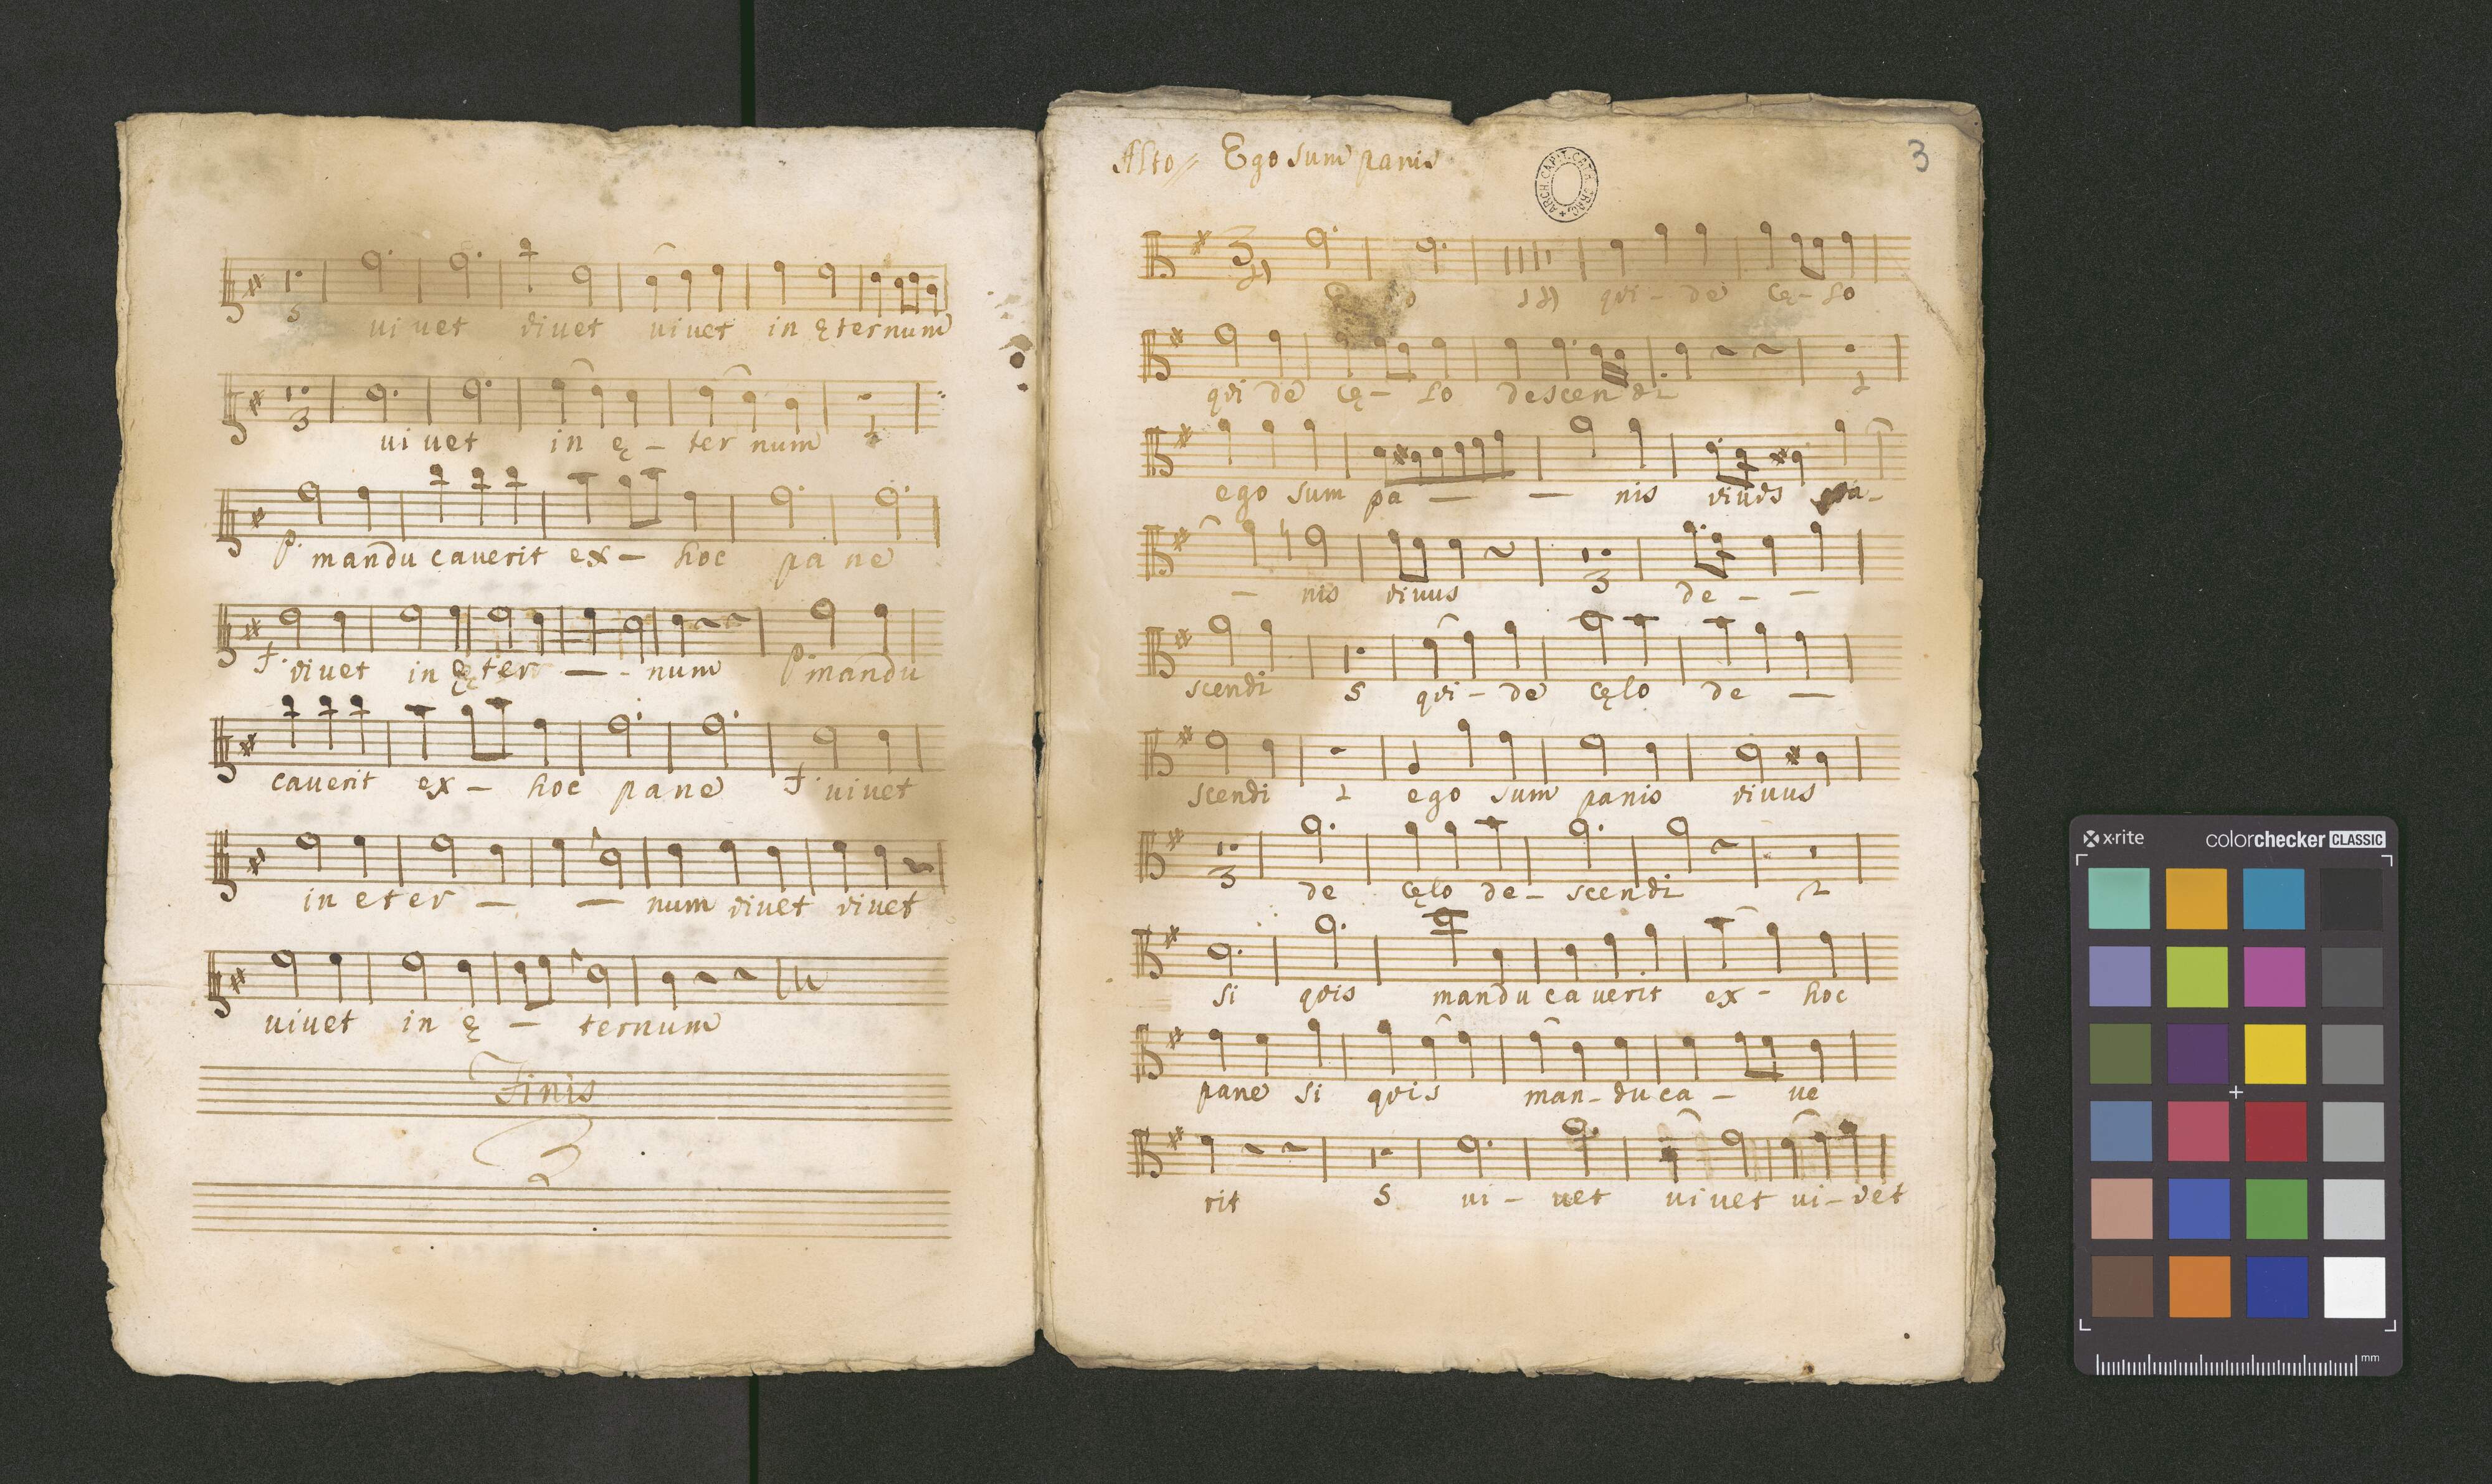 5 ui uet viuet uiuet in ęternum
3 uiuet in ę - ter num 1
P. mandu cauerit ex - hoc pa ne
f. viuet in ęter - - num P. mandu
cauerit ex - hoc pane f. uiuet
in eter - - num viuet viuet
uiuet in ę - ternum
Finis
Alto Ego sum panis
ARCH. CAPIT. CATH.
3
3 qui - de cę - lo
qui de cę - lo descendi 1
ego sum pa - - nis viuus pa -
- nis viuus 3 de - -
scendi 5 qui - de cęlo de -
scendi 1 ego sum panis viuus
3 de cęlo de - scendi 1
si quis mandu ca uerit ex - hoc
pane si quis man - du ca - ue
rit 5 ui - uet uiuet ui - vet
x·rite colorchecker CLASSIC
mm